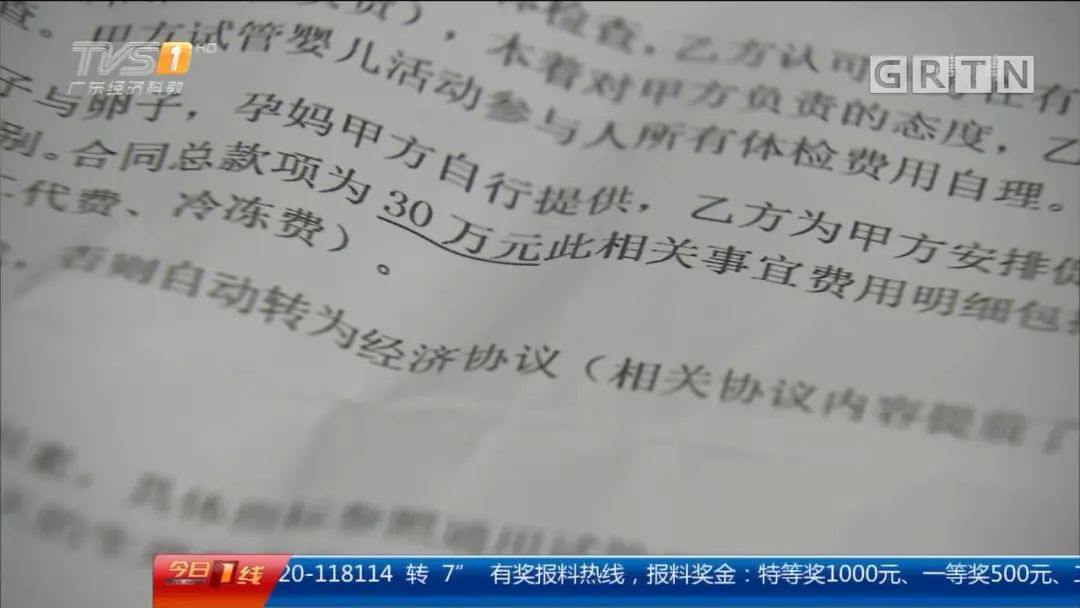 体检查，乙方认可
查。甲方试管婴儿活动参与人所有体检费用自理。
本着对甲方负责的态度，乙
子与卵子，孕妈甲方自行提供，乙方为甲方安排
别。合同总款项为30万元此相关事宜费用明细包
二代费、冷冻费）。
否则自动转为经济协议（相关协议内容提前了
具体指标参照通用试
TVS1 HD
广东经济科教
GRTN
今日1线
20-118114 转 7” 有奖报料热线，报料奖金：特等奖1000元、一等奖500元、